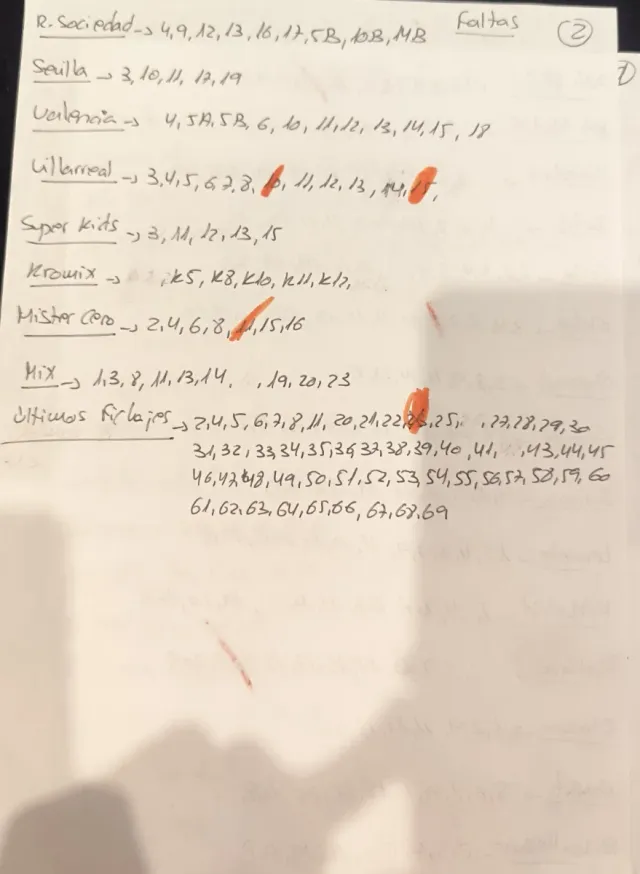 R. Sociedad → 4, 9, 12, 13, 16, 17, 5B, 10B, 14B Faltas ②
Sevilla → 3, 10, 11, 17, 19
Valencia → 4, 5A, 5B, 6, 10, 11, 12, 13, 14, 15, 18
Villarreal → 3, 4, 5, 6, 7, 8, 10, 11, 12, 13, 14, 15,
Super Kids → 3, 11, 12, 13, 15
Kromix → , K5, K8, K10, K11, K12,
Mister Cero → 2, 4, 6, 8, 11, 15, 16
Mix → 1, 3, 8, 11, 13, 14, , 19, 20, 23
Últimos Fichajes → 2, 4, 5, 6, 7, 8, 11, 20, 21, 22, 25, , 27, 28, 29, 30
31, 32, 33, 34, 35, 36, 37, 38, 39, 40, 41, , 43, 44, 45
46, 47, 48, 49, 50, 51, 52, 53, 54, 55, 56, 57, 58, 59, 60
61, 62, 63, 64, 65, 66, 67, 68, 69